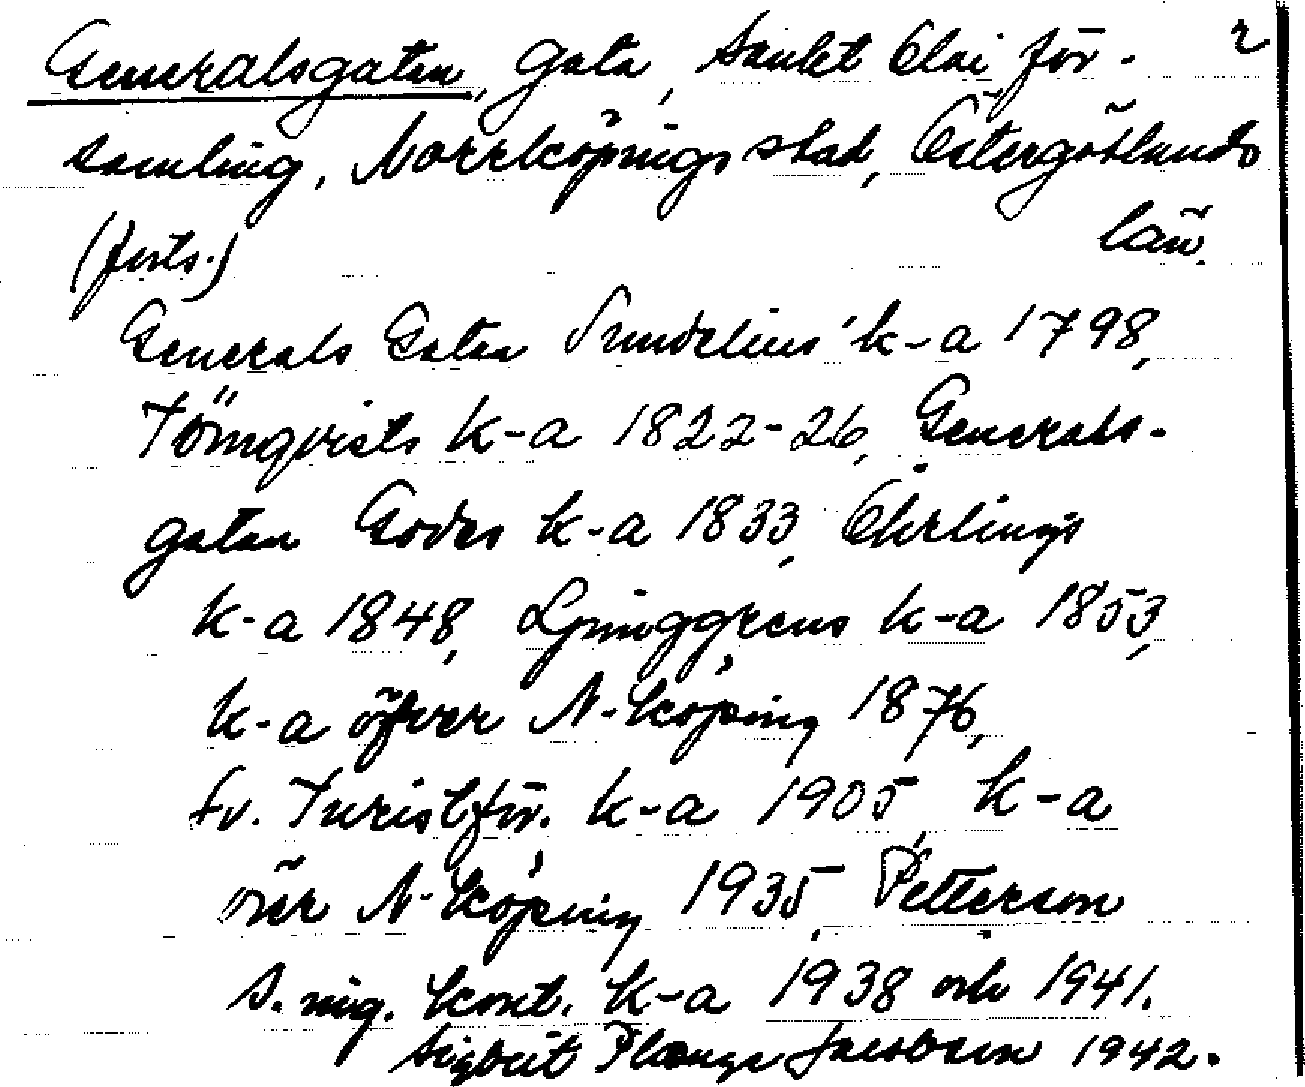 Generalsgatan, gata, Sankt Olai för- 2
samling, Norrköpings stad, Östergötlands
län.
(forts.)
Generals Gatan Sundelius' k-a 1798,
Törnqvists k-a 1822-26, Generals-
gatan Godes k-a 1833, Ehrlings
k-a 1848, Ljunggrens k-a 1853,
k-a öfver N-köping 1876,
Sv. Turistför. k-a 1905, k-a
över N-köping 1935, Petterson
s. ing. kont. k-a 1938 och 1941.
Sigbrit Plænge Jacobson 1942.